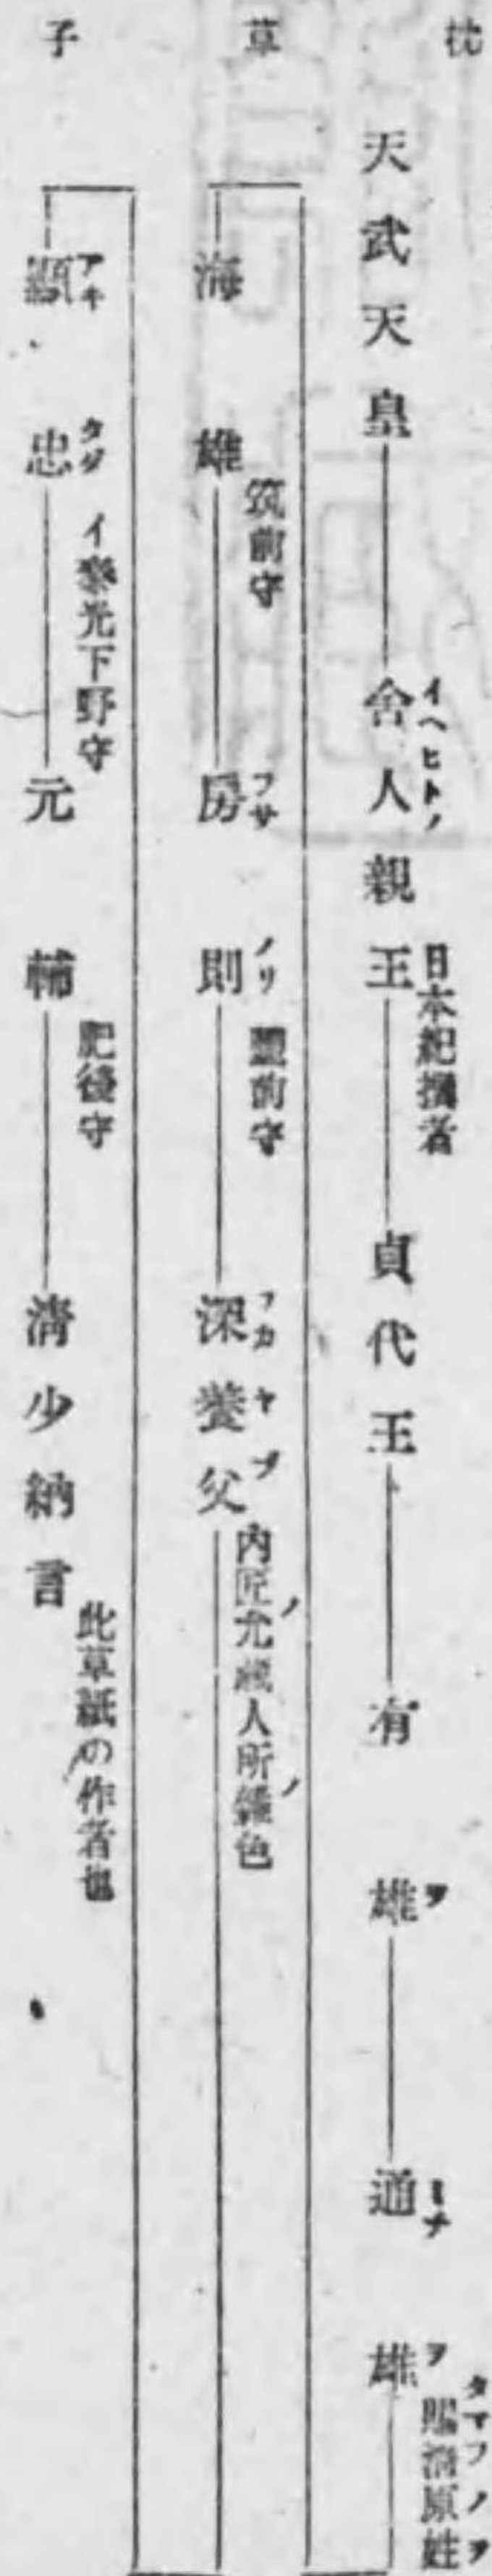 枕
草
子
天武天皇
舎人親王
イヘヒトノ
日本紀撰者
貞代王
有雄
ヲ
通雄
ミチヲ
賜清原姓
タマフノヲ
海雄
筑前守
房則
フサノリ
豊前守
深養父
フカヤブ
内匠允蔵人所雑色
ノノ
顯忠
アキタダ
イ泰光下野守
元輔
肥後守
清少納言
此草紙の作者也